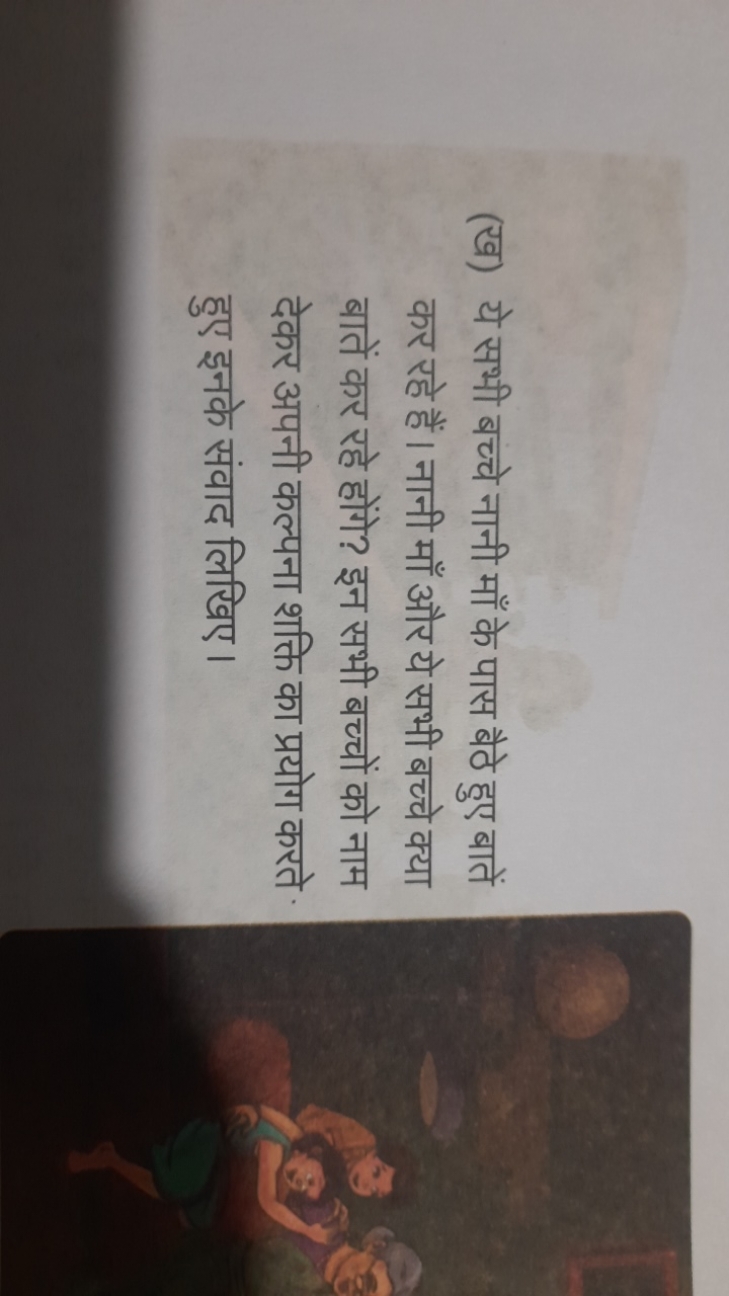 (ख) ये सभी बच्चे नानी माँ के पास बैठे हुए बातें
कर रहे हैं। नानी माँ और ये सभी बच्चे क्या
बातें कर रहे होंगे? इन सभी बच्चों को नाम
देकर अपनी कल्पना शक्ति का प्रयोग करते
हुए इनके संवाद लिखिए।